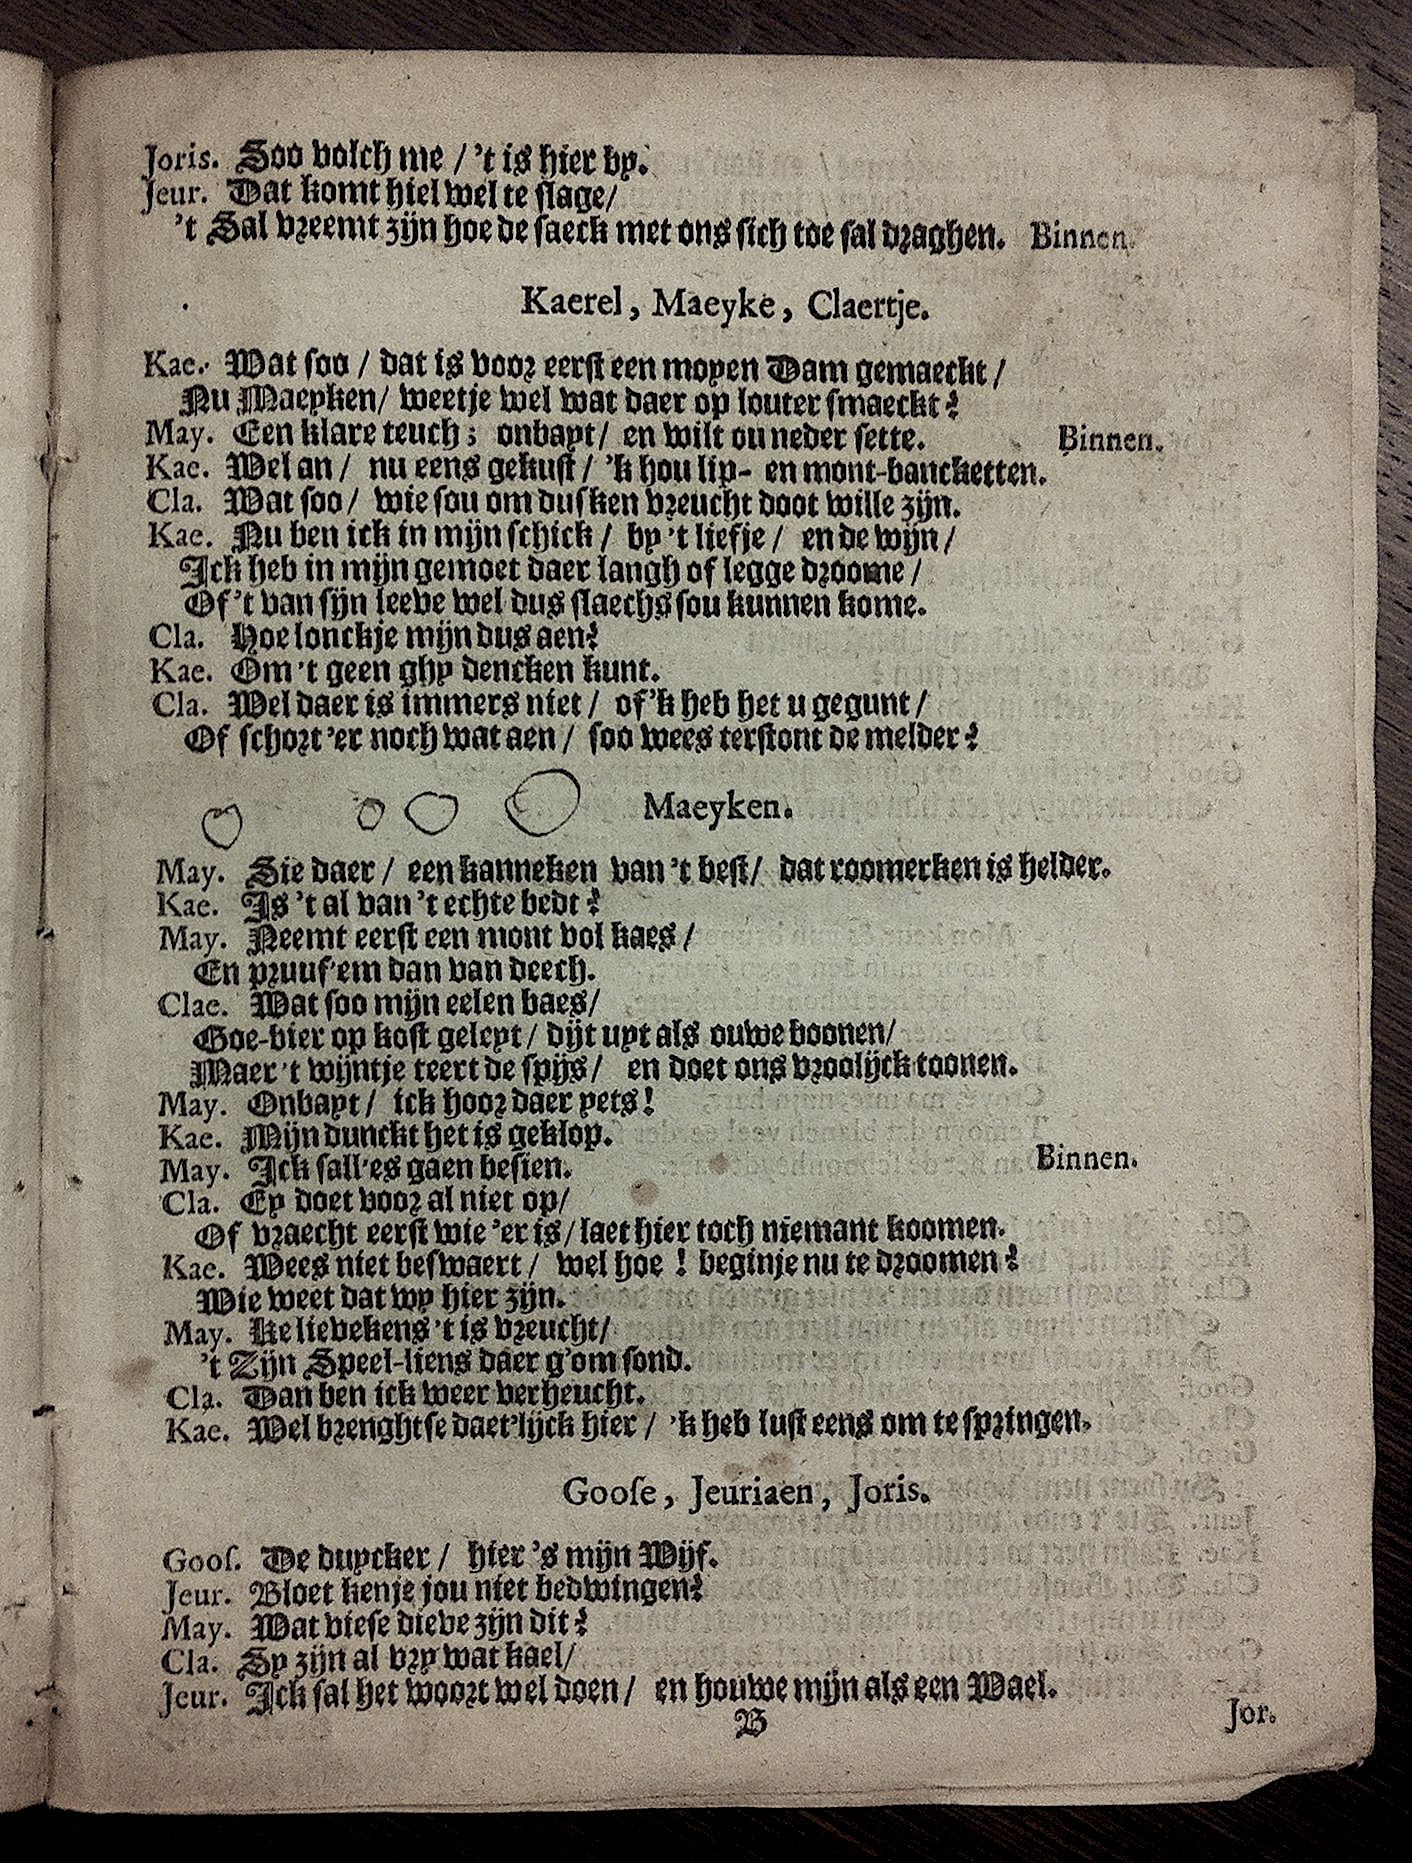 Joris. Soo volch me / 't is hier by.
Jeur. Dat komt hiel wel te slage /
't Sal vreemt zijn hoe de saeck met ons sich toe sal draghen. Binnen.
Kaerel, Maeyke, Claertje.
Kae. Wat soo / dat is voor eerst een moyen Dam gemaeckt /
Nu Maeyken / weetje wel wat daer op louter smaeckt?
May. Een klare teuch; onbayt / en wilt ou neder sette. Binnen.
Kae. Wel an / nu eens gekust / 'k hou lip- en mont-bancketten.
Cla. Wat soo / wie sou om dusken vreucht doot wille zijn.
Kae. Nu ben ick in mijn schick / by 't liefje / en de wijn /
Ick heb in mijn gemoet daer langh of legge droome /
Of 't van sijn leeve wel dus slaechs sou kunnen kome.
Cla. Hoe lonckje mijn dus aen?
Kae. Om 't geen ghy dencken kunt.
Cla. Wel daer is immers niet / of 'k heb het u gegunt /
Of schort 'er noch wat aen / soo wees terstont de melder?
Maeyken.
May. Sie daer / een kanneken van 't best / dat roomerken is helder.
Kae. Is 't al van 't echte bedt?
May. Neemt eerst een mont vol kaes /
En pruuf'em dan van deech.
Clae. Wat soo mijn eelen baes /
Goe-bier op kost geleyt / dijt uyt als ouwe boonen /
Maer 't wijntje teert de spijs / en doet ons vroolijck toonen.
May. Onbayt / ick hoor daer yets!
Kae. Mijn dunckt het is geklop.
May. Ick sall'es gaen besien. Binnen.
Cla. Ey doet voor al niet op /
Of vraecht eerst wie 'er is / laet hier toch niemant koomen.
Kae. Wees niet beswaert / wel hoe! beginje nu te droomen?
Wie weet dat wy hier zijn.
May. Ke lievekens 't is vreucht /
't Zijn Speel-liens daer g'om sond.
Cla. Dan ben ick weer verheucht.
Kae. Wel brenghtse daet'lijck hier / 'k heb lust eens om te springen.
Goose, Jeuriaen, Joris.
Goos. De duycker / hier 's mijn Wijf.
Jeur. Bloet kenje jou niet bedwingen?
May. Wat viese dieve zijn dit?
Cla. Sy zijn al vry wat kael /
Jeur. Ick sal het woort wel doen / en houwe mijn als een Wael.
B Jor.